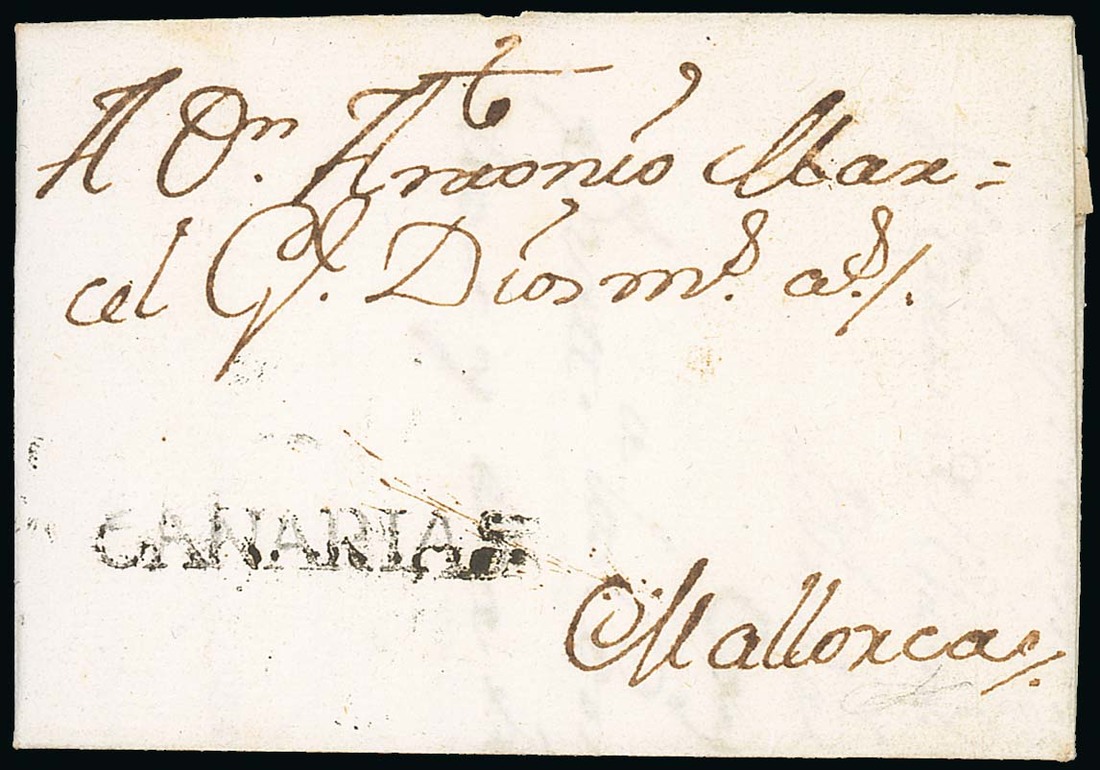 A Dn. Antonio Mar=
cel G. Dios ms. as./.
CANARIAS
Mallorca/.